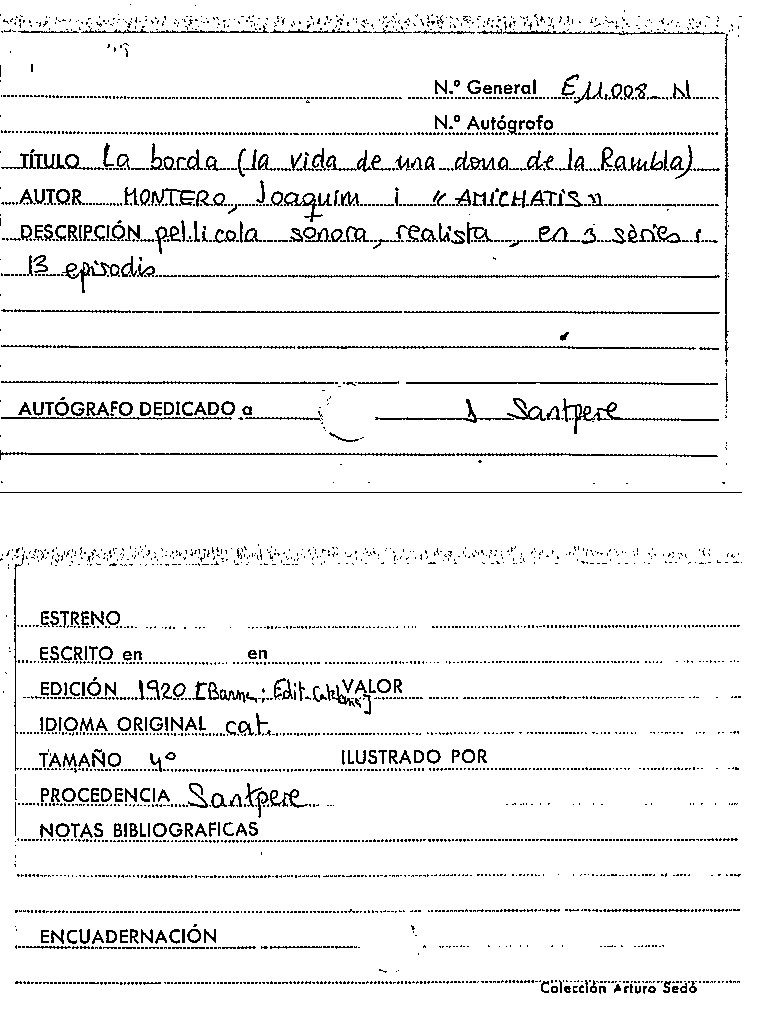 N.º General E, 11.008 N
N.º Autógrafo
TÍTULO La borda (la vida de una dona de la Rambla)
AUTOR MONTERO, Joaquim i "AMICHATIS"
DESCRIPCIÓN pel.licola sonora, realista, en 3 sèries i
13 episodis
AUTÓGRAFO DEDICADO a J Santpere
ESTRENO
ESCRITO en en
EDICIÓN 1920 [Barna: Edit. VALOR
IDIOMA ORIGINAL cat.
TAMAÑO 4º ILUSTRADO POR
PROCEDENCIA Santpere
NOTAS BIBLIOGRAFICAS
ENCUADERNACIÓN
Colección Arturo Sedó